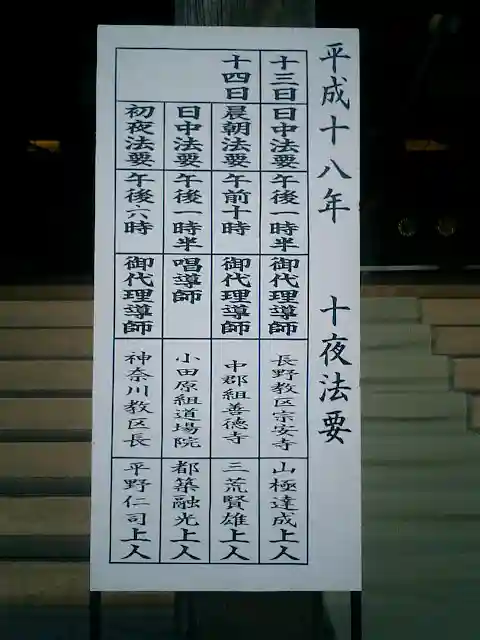 平成十八年 十夜法要
十三日 日中法要 午後一時半 御代理導師 長野教区宗安寺 山極達成上人
十四日 晨朝法要 午前十時 御代理導師 中郡組善徳寺 三荒賢雄上人
日中法要 午後一時半 唱導師 小田原組道場院 都築融光上人
初夜法要 午後六時 御代理導師 神奈川教区長 平野仁司上人